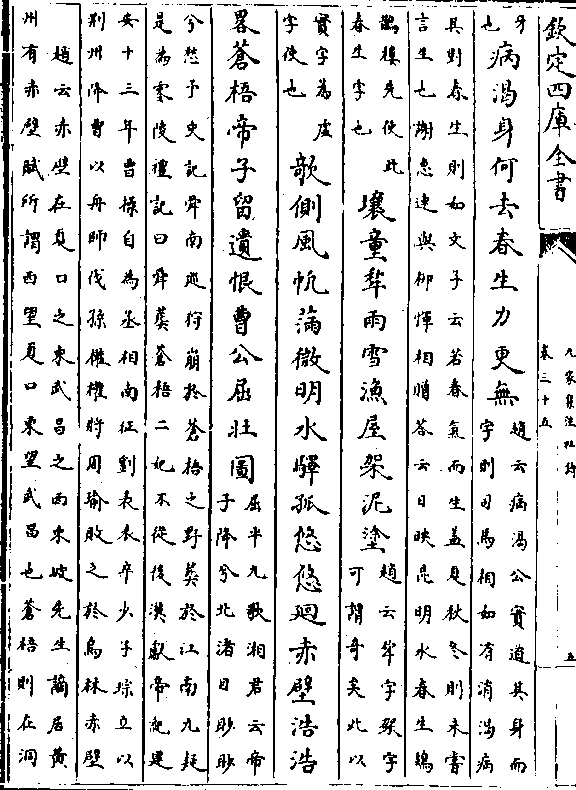 欽定四庫全書
九家集注杜詩
卷三十五
五
牙
也
病渴身何去春生力更無
趙云病渴公實道其身而
字則司馬相如有消渴病
具對春生則如文子云若春氣而生蓋夏秋冬則未嘗
言生也謝惠連與柳惲相贈答云日映昆明水春生鳷
鵲樓先使此
春生字也
壤童犂雨雪漁屋架泥塗
趙云犂字架字
可謂奇矣此以
實字為虛
字使也
欹側風帆滿微明水驛孤悠悠迴赤壁浩浩
畧蒼梧帝子留遺恨曹公屈壯圖
屈平九歌湘君云帝
子降兮北渚目眇眇
兮愁予史記舜南巡狩崩於蒼梧之野葬於江南九疑
是為零陵禮記曰舜葬蒼梧二妃不從後漢獻帝紀建
安十三年曹操自為丞相南征劉表表卒少子琮立以
荆州降曹以舟師伐孫權權將周瑜敗之於烏林赤壁
趙云赤壁在夏口之東武昌之西東坡先生謫居黃
州有赤壁賦所謂西望夏口東望武昌也蒼梧則在洞